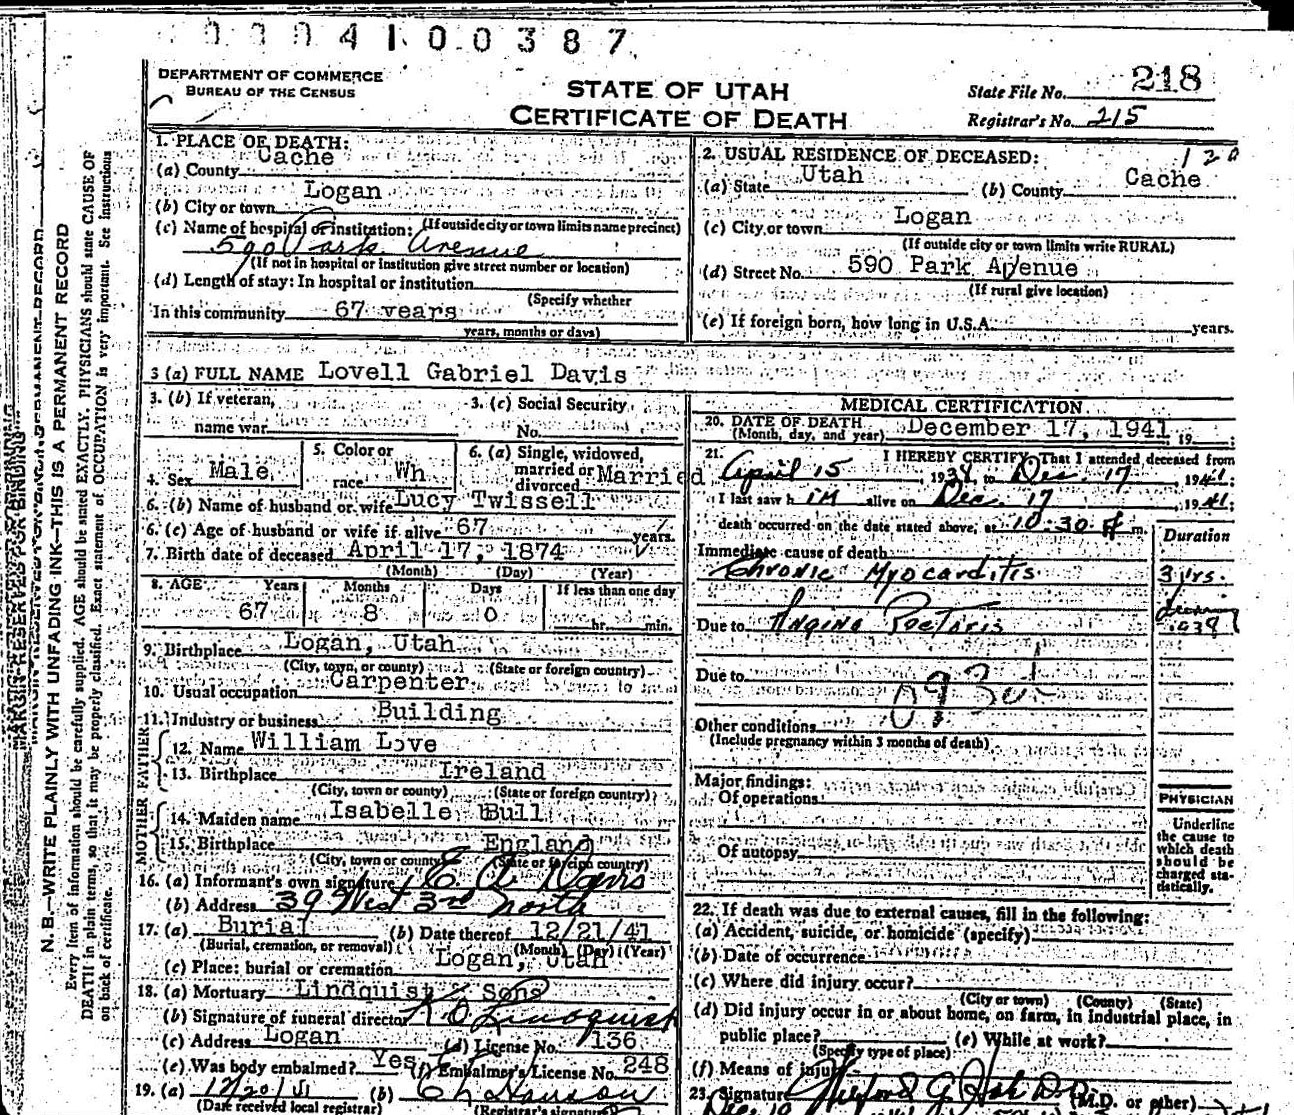 0004100387
DEPARTMENT OF COMMERCE
BUREAU OF THE CENSUS
STATE OF UTAH
CERTIFICATE OF DEATH
State File No. 218
Registrar's No. 215
1. PLACE OF DEATH:
(a) County Cache
(b) City or town Logan
(If outside city or town limits name precinct)
(c) Name of hospital or institution:
590 Park Avenue
(If not in hospital or institution give street number or location)
(d) Length of stay: In hospital or institution
(Specify whether
In this community 67 years
years, months or days)
2. USUAL RESIDENCE OF DECEASED: 120
(a) State Utah (b) County Cache
(c) City or town Logan
(If outside city or town limits write RURAL)
(d) Street No. 590 Park Avenue
(If rural give location)
(e) If foreign born, how long in U.S.A. years.
3 (a) FULL NAME Lovell Gabriel Davis
3. (b) If veteran,
name war
3. (c) Social Security
No.
4. Sex Male
5. Color or
race Wh
6. (a) Single, widowed,
married or
divorced Married
6. (b) Name of husband or wife Lucy Twissell
6. (c) Age of husband or wife if alive 67 years.
7. Birth date of deceased April 17, 1874
(Month) (Day) (Year)
8. AGE Years Months Days If less than one day
67 8 0 hr. min.
9. Birthplace Logan, Utah
(City, town, or county) (State or foreign country)
10. Usual occupation Carpenter
11. Industry or business Building
FATHER
12. Name William Love
13. Birthplace Ireland
(City, town or county) (State or foreign country)
MOTHER
14. Maiden name Isabelle Bull
15. Birthplace England
(City, town or county) (State or foreign country)
16. (a) Informant's own signature E A Davis
(b) Address 39 West 3rd North
17. (a) Burial (b) Date thereof 12/21/41
(Burial, cremation, or removal) (Month) (Day) (Year)
(c) Place: burial or cremation Logan, Utah
18. (a) Mortuary Lindquist & Sons
(b) Signature of funeral director Lindquist
(c) Address Logan (d) License No. 136
(e) Was body embalmed? Yes (f) Embalmer's License No. 248
19. (a) 12/20/41 (b)
(Date received local registrar) (Registrar's signature)
MEDICAL CERTIFICATION
20. DATE OF DEATH
(Month, day, and year) December 17, 1941, 19
21. I HEREBY CERTIFY, That I attended deceased from
April 15, 1938, to Dec. 17, 1941;
I last saw h im alive on Dec. 17, 1941;
death occurred on the date stated above, at 10:30 m.
Duration
Immediate cause of death
Chronic Myocarditis 3 yrs.
Due to Angina Pectoris 1939
Due to
Other conditions
(Include pregnancy within 3 months of death)
Major findings:
Of operations
Of autopsy
PHYSICIAN
Underline
the cause to
which death
should be
charged sta-
tistically.
22. If death was due to external causes, fill in the following:
(a) Accident, suicide, or homicide (specify)
(b) Date of occurrence
(c) Where did injury occur?
(City or town) (County) (State)
(d) Did injury occur in or about home, on farm, in industrial place, in
public place? (e) While at work?
(Specify type of place)
(f) Means of injury
23. Signature (M.D. or other)
MARGIN RESERVED FOR BINDING
N. B.—WRITE PLAINLY WITH UNFADING INK—THIS IS A PERMANENT RECORD
Every item of information should be carefully supplied. AGE should be stated EXACTLY. PHYSICIANS should state CAUSE OF
DEATH in plain terms, so that it may be properly classified. Exact statement of OCCUPATION is very important. See instructions
on back of certificate.